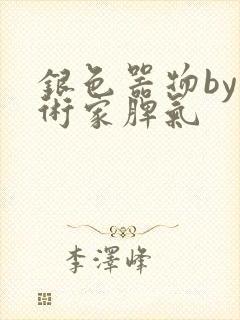 銀色器物by
術家脾氣
李澤峰